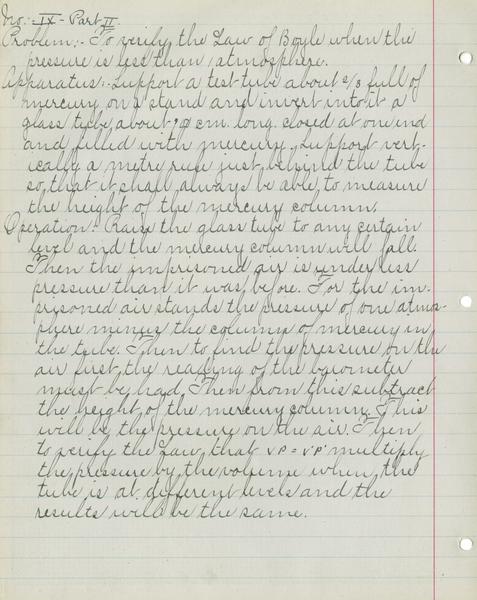 No. IX - Part II
Problem:- To verify the Law of Boyle when the
pressure is less than 1 atmosphere.
Apparatus:- Support a test tube about 2/3 full of
mercury on a stand and invert into it a
glass tube about cm. long closed at one end
and filled with mercury. Support vert-
ically a metre rule just behind the tube
so that it shall always be able to measure
the height of the mercury column.
Operation:- Raise the glass tube to any certain
level and the mercury column will fall.
Then the imprisoned air is under less
pressure than it was before. For the im-
prisoned air stands the pressure of one atmos-
phere minus the column of mercury in
the tube. Then to find the pressure on the
air first the reading of the barometer
must be had. Then from this subtract
the height of the mercury column. This
will be the pressure on the air. Then
to verify the Law, that VP = V'P' multiply
the pressure by the volume when the
tube is at different levels and the
results will be the same.